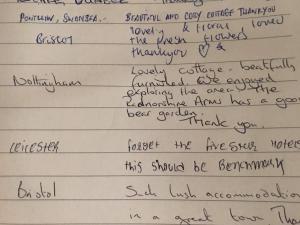 PONTLLIW, SWANSEA. BEAUTIFUL AND COSY COTTAGE THANKYOU
lovely & floral loved
Bristol the fresh flowers
thankyou &
Lovely cottage - beatfully
Nottingham furnished. We enjoyed
exploring the area. The
Radnorshire Arms has a good
bear garden.
Thank you.
LEICESTER forget the five star Hotels
this should be Benchmark
Bristol Such lush accommodation
in a great town